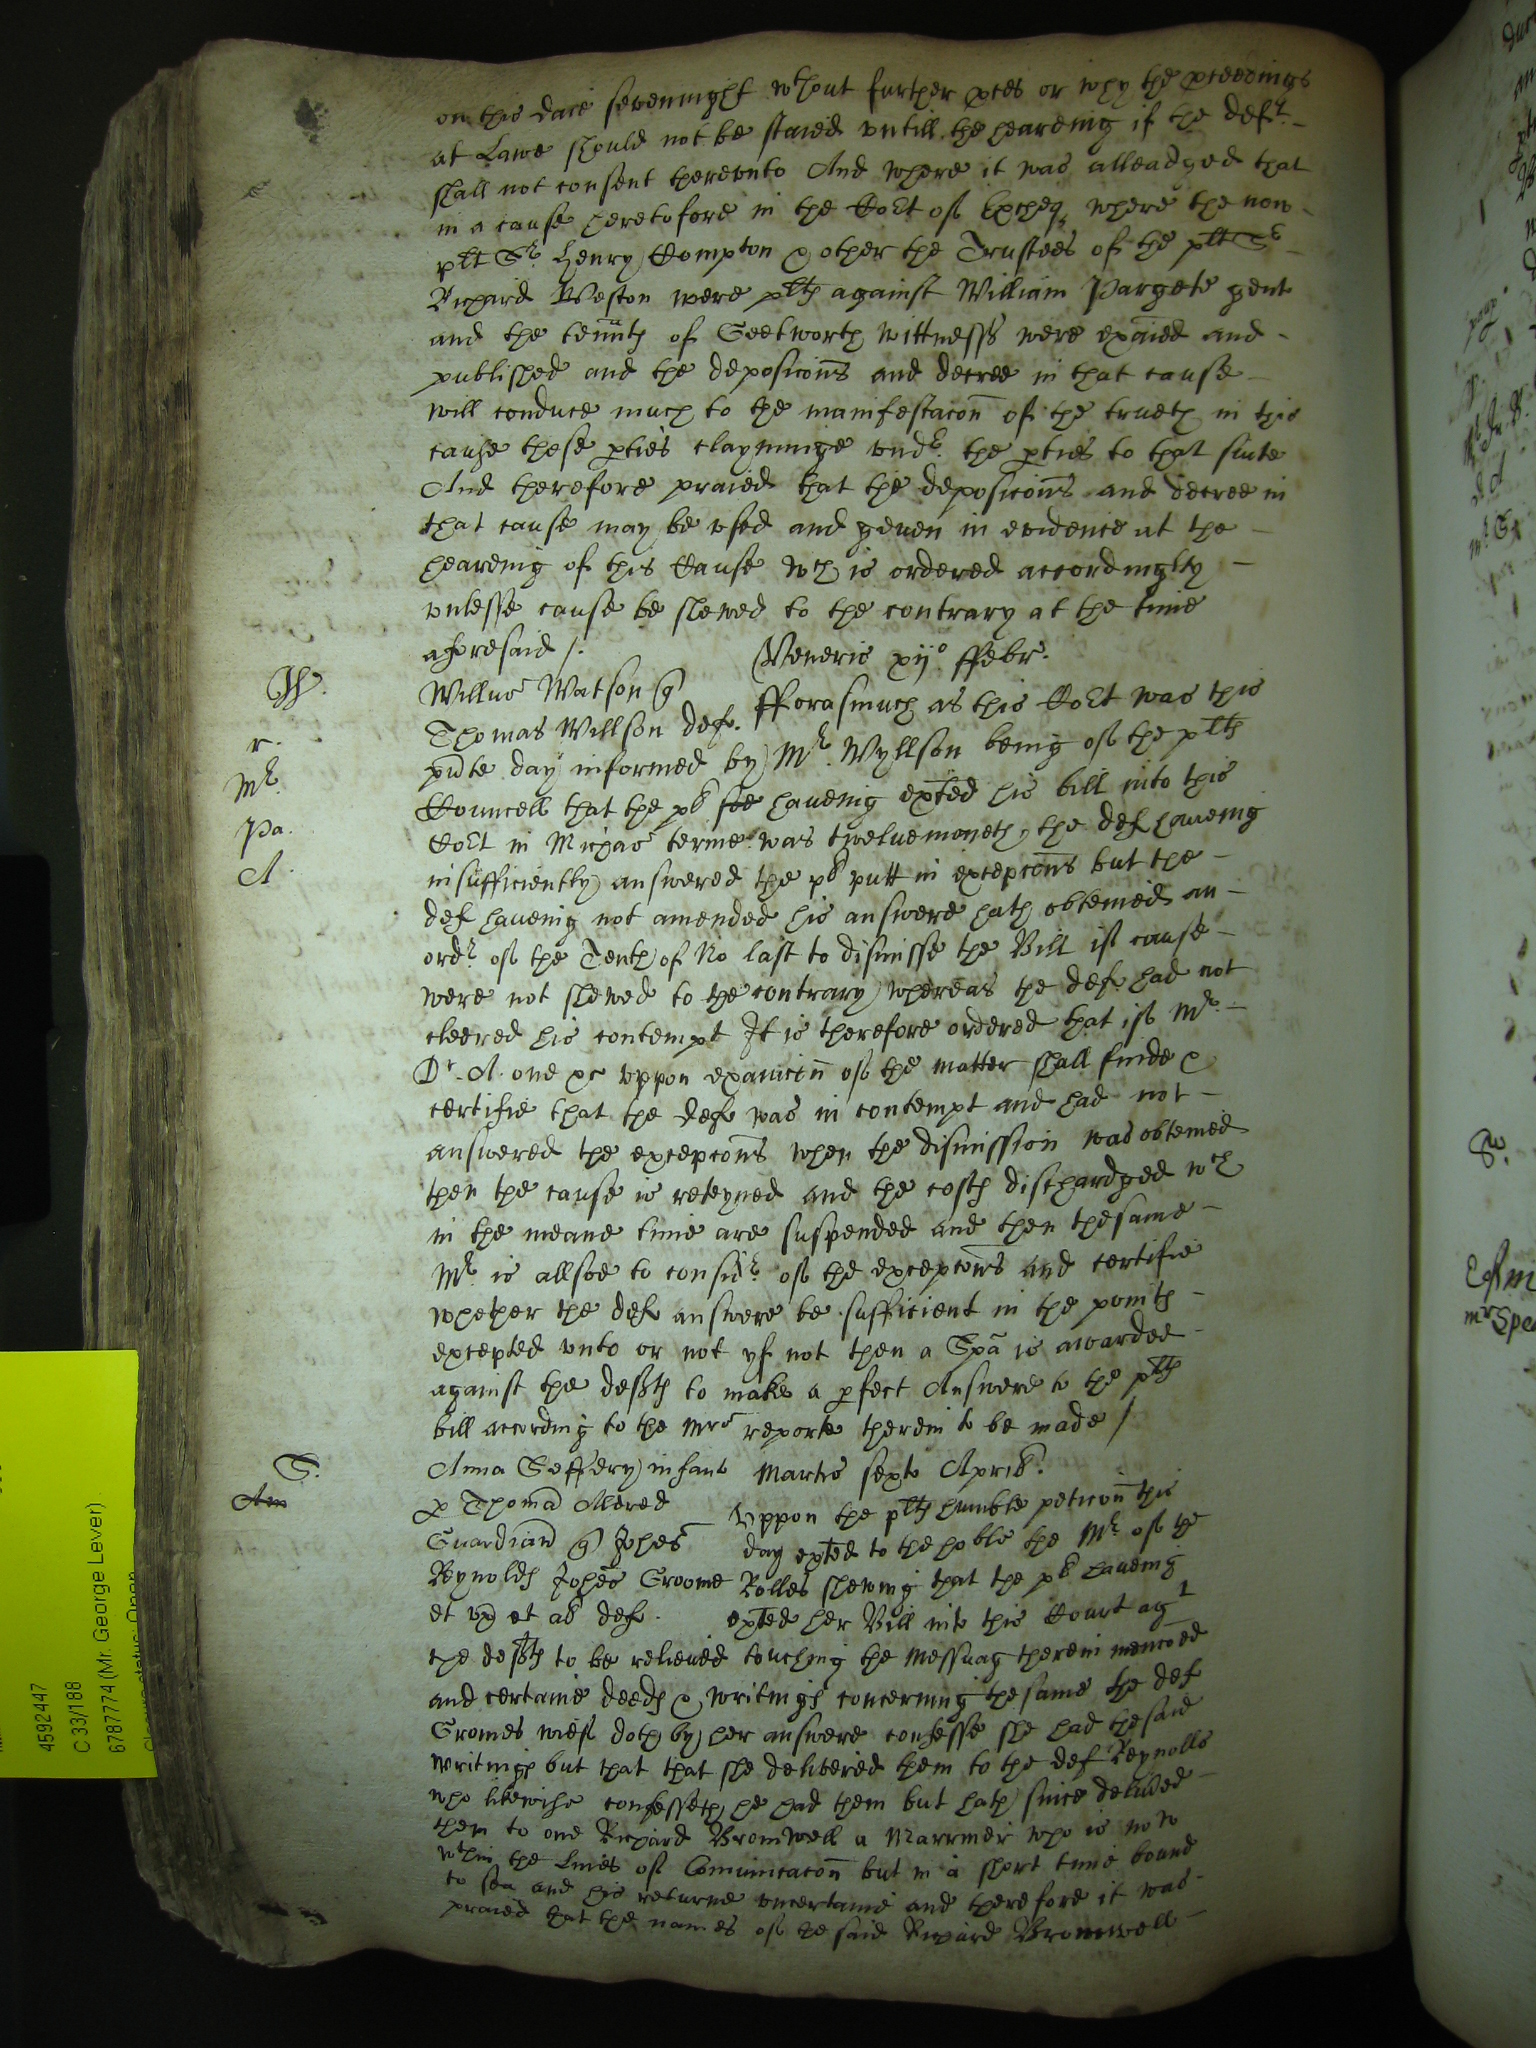 on this daie sevennight wthout further pces or why the pceedings
at Lawe should not be staied untill the heareing if the deft
shall not consent thereunto And where it was alleadged that
in a cause heretofore in the Cort of Excheqr where the now
plt Sr Henry Compton & other the Trustees of the plt Sr
Richard Weston were plts against William Pargete gent
and the tennts of Geetworth wittnesses were exaied and
published and the deposicons and decree in that cause
will conduce much to the manifestacon of the trueth in this
cause these pties clayminge undr the pties to that suite
And therefore praied that the deposicons and decree in
that cause may be used and geven in evidence at the
heareing of this Cause wch is ordered accordingly
unlesse cause be shewed to the contrary at the time
aforesaid /. Veneris xijo ffebr.
Willus Watson q fforasmuch as this Cort was this
Thomas Willson def.
pnte day informed by Mr. Wyllson being of the plts
Councell that the pl haveing exted his bill into this
Cort in Michas terme was twelvemoneth, the def haveing
insufficiently answered the pl putt in excepcons but the
def haveing not amended his answere hath obteined an
ordr of the Tenth of No last to dismisse the Bill if cause
were not shewed to the contrary whereas the def had not
cleered his contempt It is therefore ordered that if Mr
Dr. A. one &c uppon exaicon of the matter shall finde &
certifie that the def was in contempt and had not
answered the excepcons when the dismission was obteined
then the cause is reteyned and the costs dischardged wch
in the meane time are suspended and then thesame
Mr is allsoe to considr of the excepcons and certifie
whether the def answere be sufficient in the points
excepted unto or not yf not then a Spa is awarded
against the defts to make a pfect Answere to the plts
bill according to the Mrs reporte therein to be made /
Anna Seffery infans Martis sexto Aprilis.
p Thoma Allered Uppon the plts humble peticon this
Guardian q Johes day exted to the hoble the Mr of the
Reynolds Johes Groome Rolles shewing that the pl haveing
et ux et al def. exted her Bill into this Court agt
the defts to be relieved touching the Messuag therein mencoed
and certaine deeds & writings concerning thesame the def
Gromes wief doth by her answere confesse she had thesaid
writings but that that she delivered them to the def Reynolls
who likewise confesseth he had them but hath since delived
them to one Richard Bromwell a Marriner who is now
wthin the Lines of Comunicacon but in a short time bound
to sea and his returne uncertaine and therefore it was
praied that the names of the said Richard Bromwell
r.
Mr.
Pa.
A.
S.
4592447
C 33/188
6787774 (Mr. George Lever)